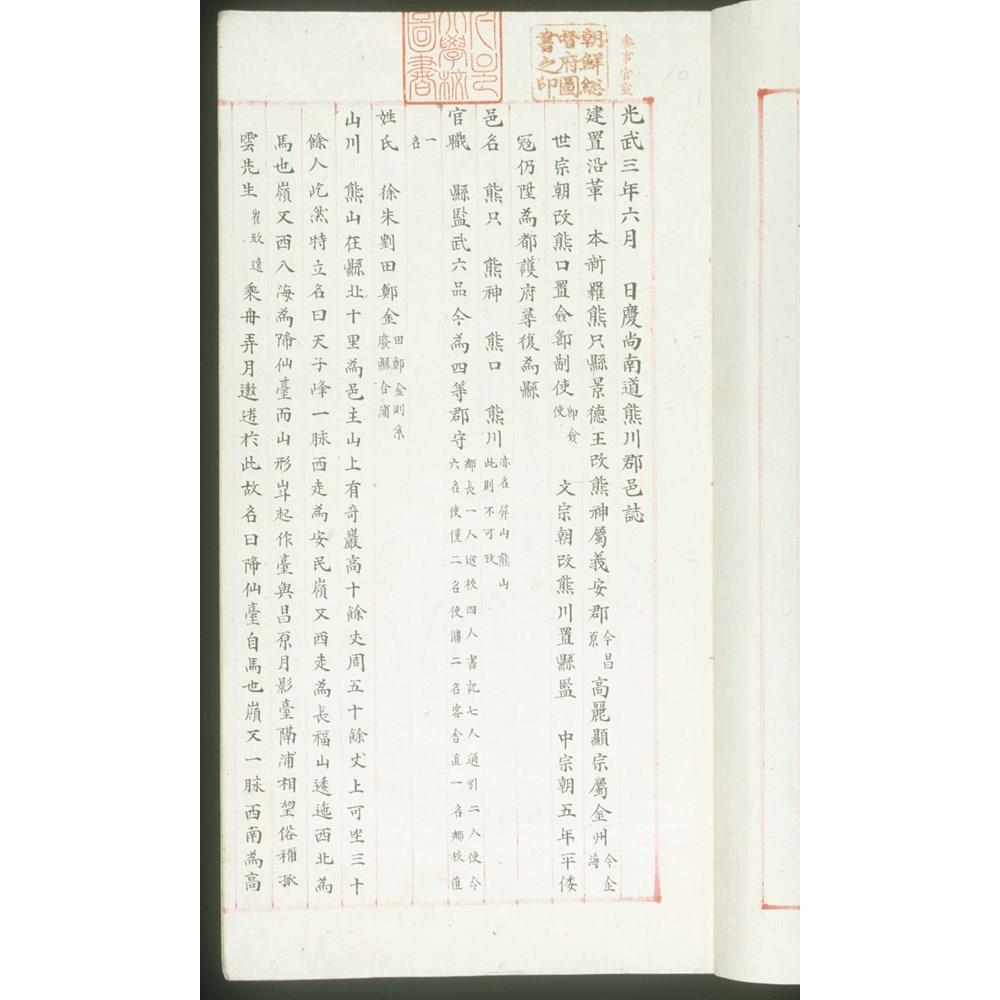 參事官室
朝鮮総督府圖書之印
大學校圖書
光武三年六月 日慶尚南道熊川郡邑誌
建置沿革 本新羅熊只縣景德王改熊神屬義安郡今昌原高麗顯宗屬金州今金海
世宗朝改熊口置僉節制使即僉使 文宗朝改熊川置縣監 中宗朝五年平倭
冦仍陞為都護府尋復為縣
邑名 熊只 熊神 熊口 熊川亦名屏山熊山此則不可攷
官職 縣監武六品今為四等郡守鄕長一人巡校四人書記七人通引二人使令六名使僮二名使傭二名客舍直一名鄕校直
一名
姓氏 徐朱劉田鄭金田鄭金則系廢縣合浦
山川 熊山在縣北十里為邑主山上有奇巖高十餘丈周五十餘丈上可坐三十
餘人屹然特立名曰天子峰一脉西走為安民嶺又西走為長福山逶迤西北為
馬也嶺又西入海為降仙臺而山形斗起作臺與昌原月影臺隔浦相望俗稱孤
雲先生崔致遠乘舟弄月遨遊於此故名曰降仙臺自馬也嶺又一脉西南為高